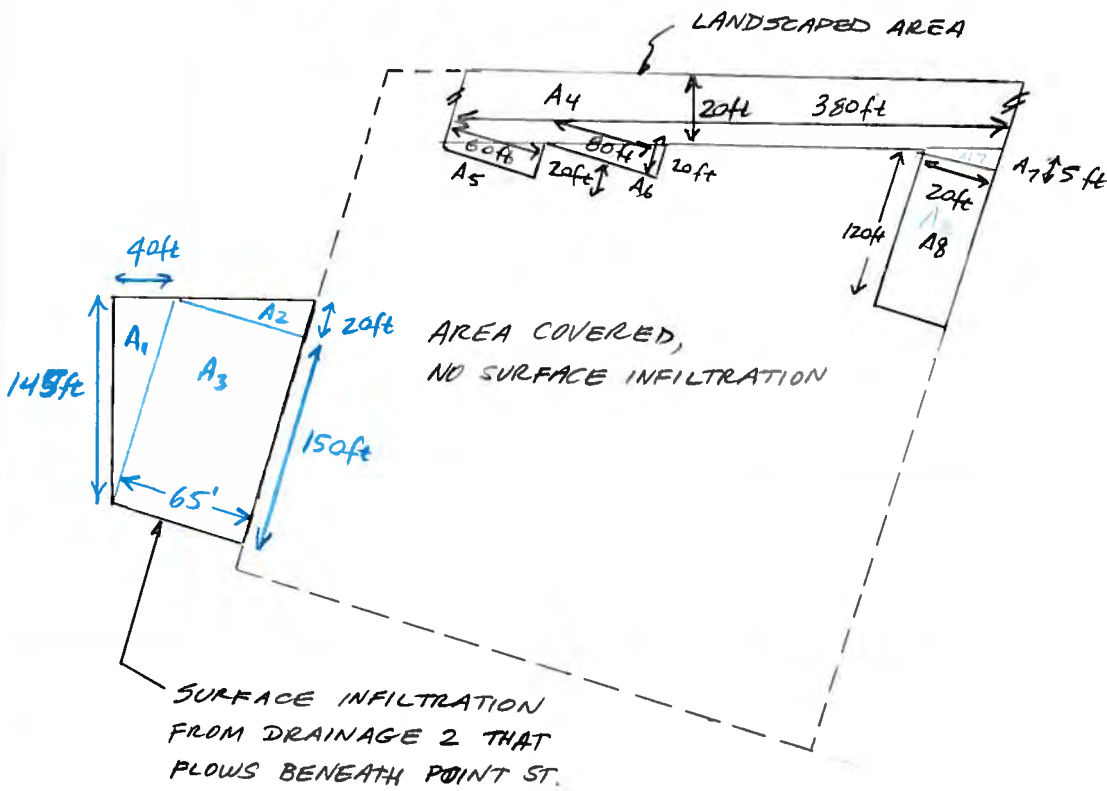 LANDSCAPED AREA
A4
20ft
380ft
60ft
80ft
20ft
A5
20ft
A6
A7
5ft
20ft
120ft
A8
40ft
A1
A2
20ft
AREA COVERED,
NO SURFACE INFILTRATION
A3
145ft
150ft
65'
SURFACE INFILTRATION
FROM DRAINAGE 2 THAT
FLOWS BENEATH POINT ST.